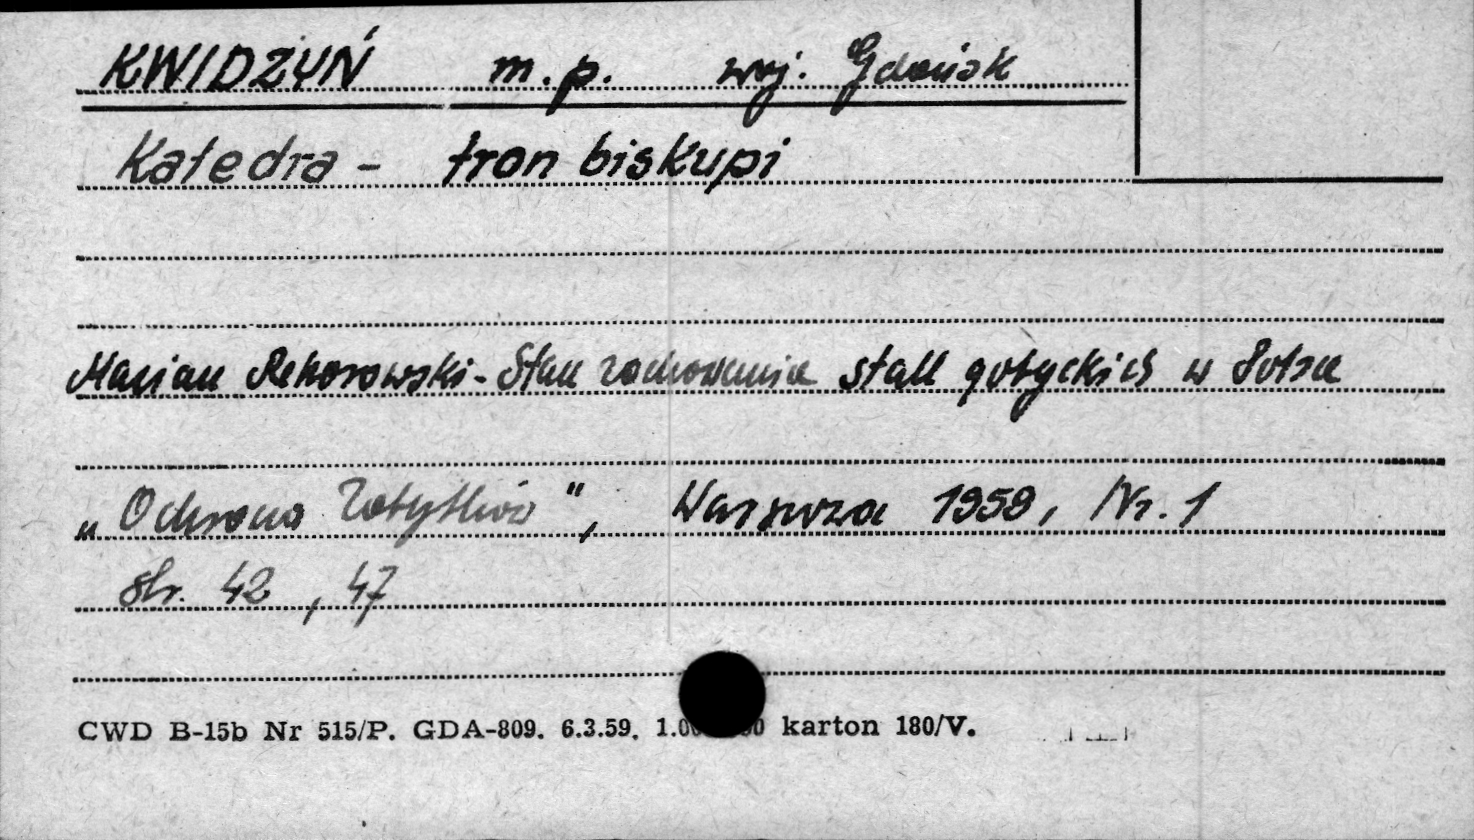 KWIDZYŃ m.p. woj. Gdańsk
Katedra - tron biskupi
Marian Rehorowski - Stan zachowania stall gotyckich w Polsce
„Ochrona Zabytków", Warszawa 1959, Nr. 1
str. 42, 47
CWD B-15b Nr 515/P. GDA-809. 6.3.59. karton 180/V.